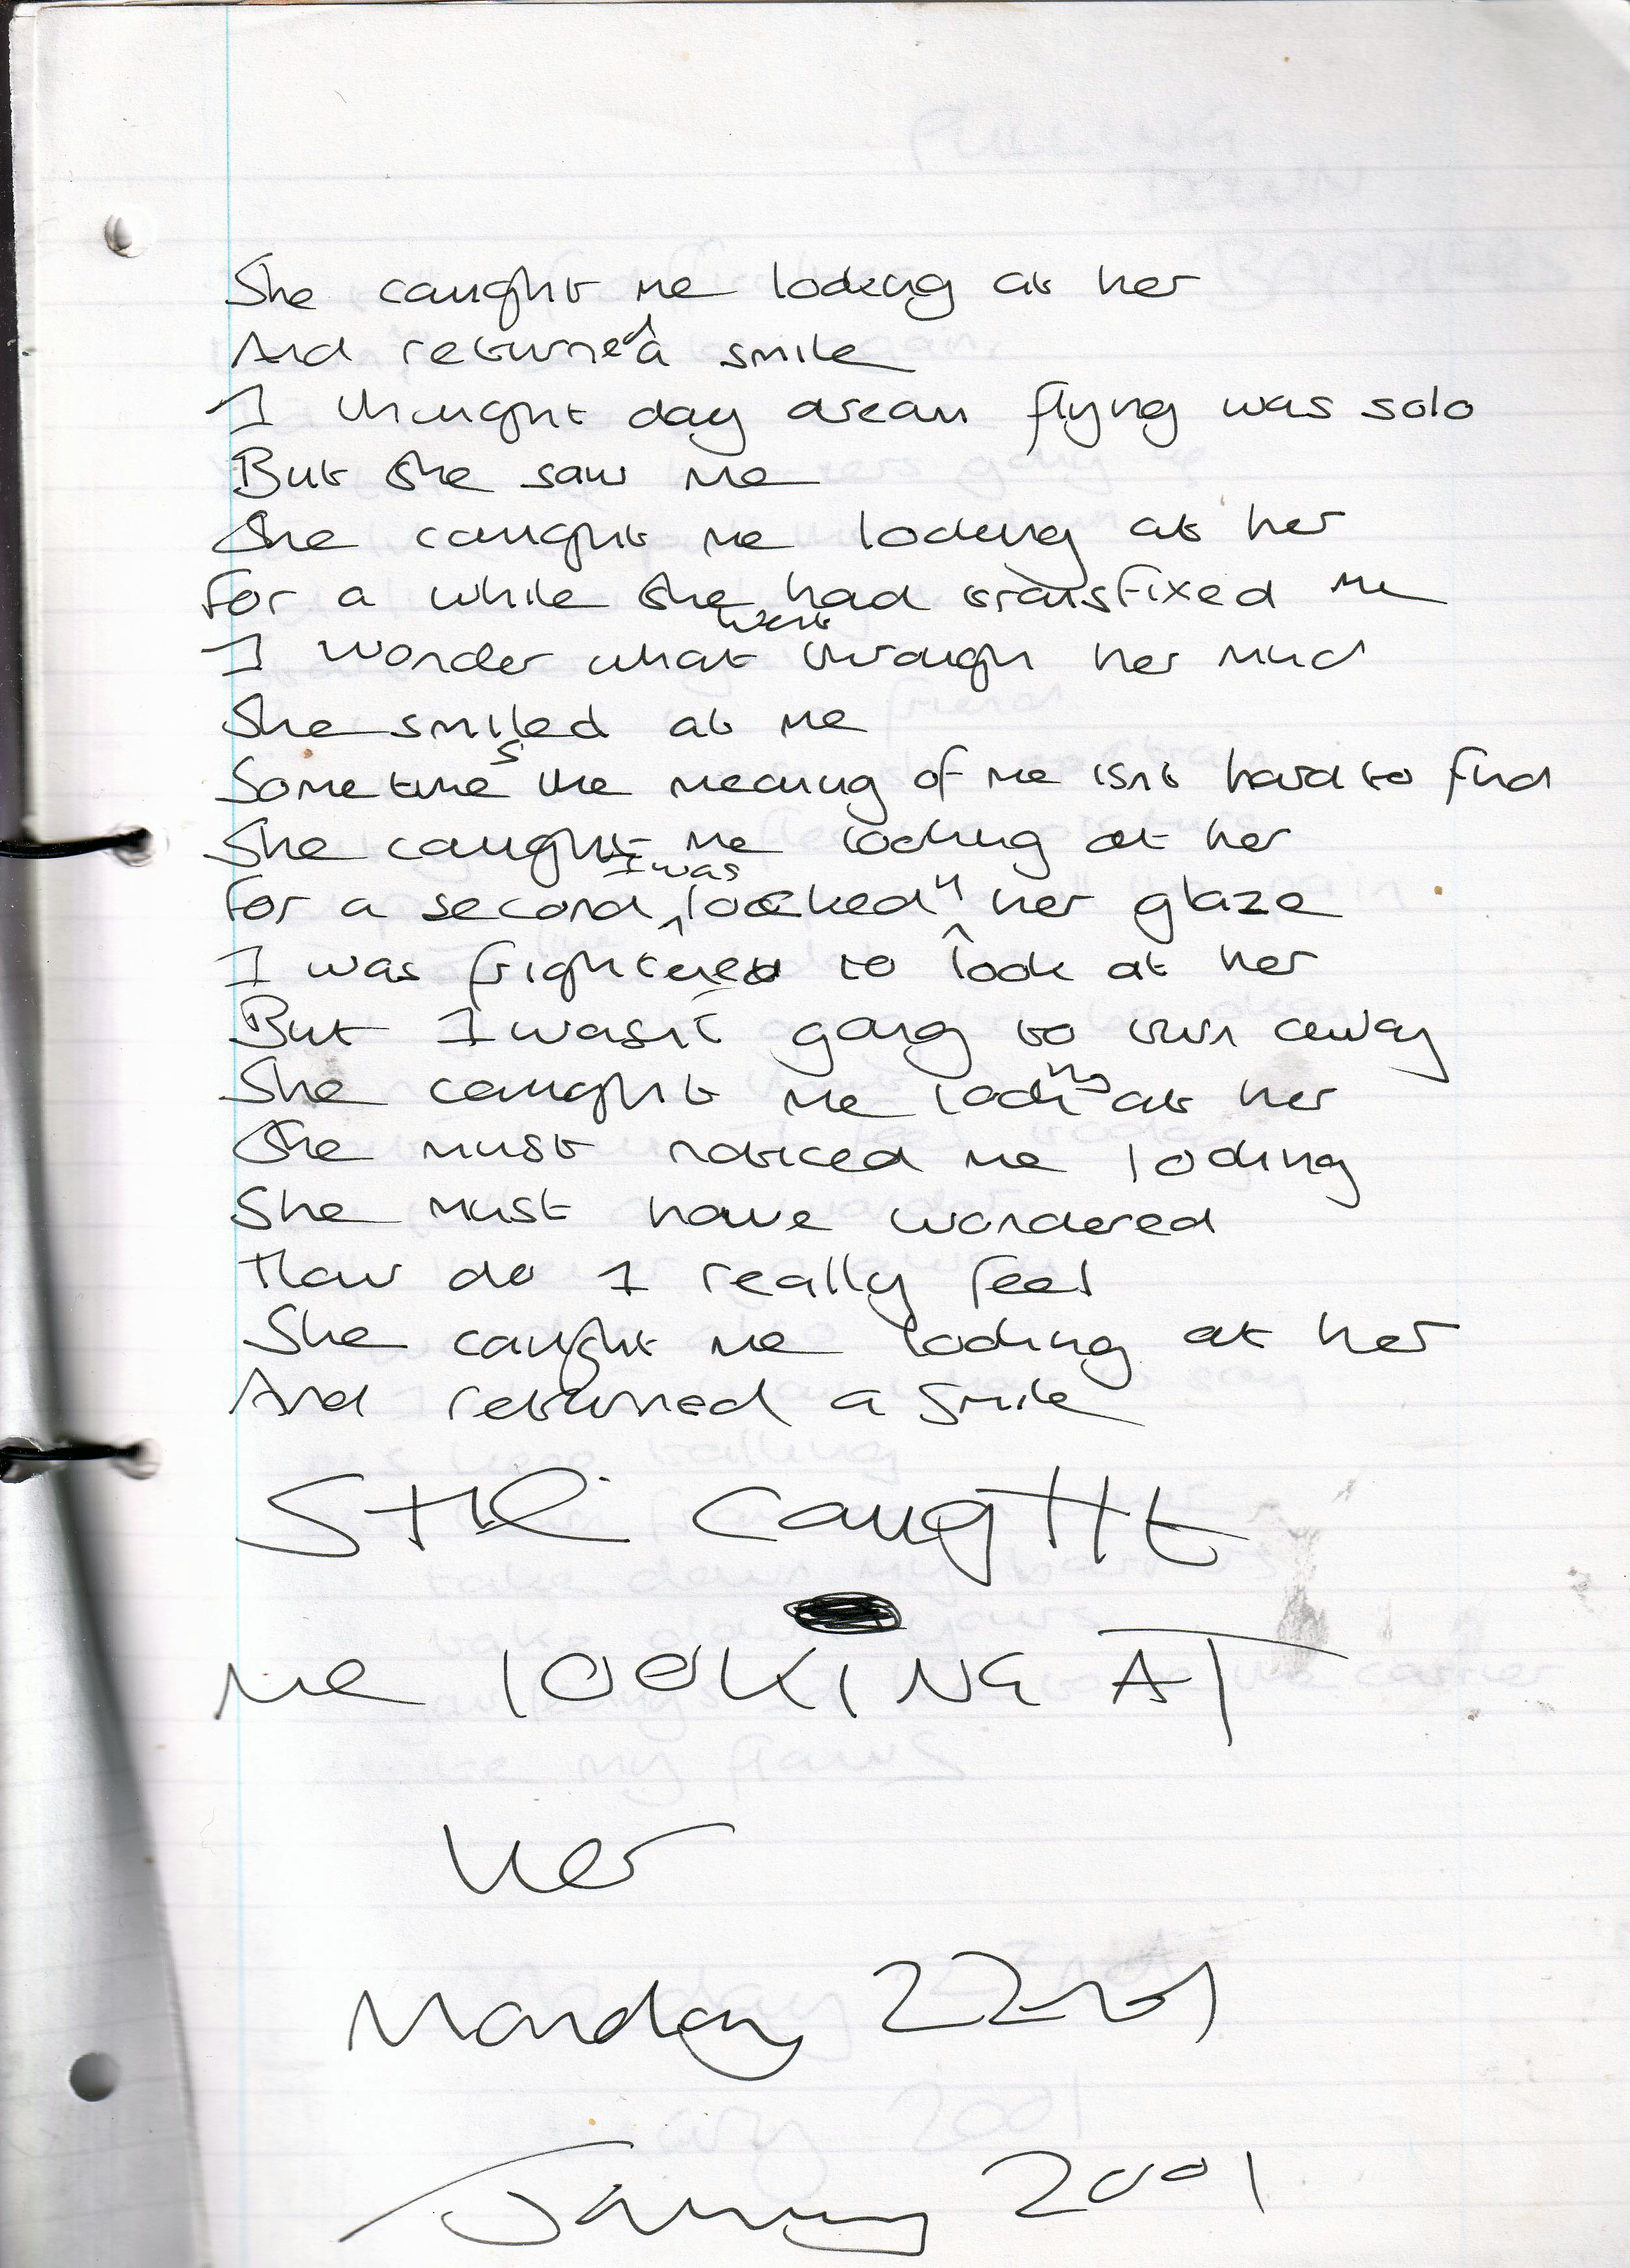 She caught me looking at her
And returned a smile
I thought day dream flying was solo
But she saw me
She caught me looking at her
For a while she had transfixed me
I wonder what went through her mind
She smiled at me
Sometimes the meaning of me isnt hard to find
She caught me looking at her
For a second I was locked in her glaze
I was frightened to look at her
But I wasnt going to run away
She caught me looking at her
She must noticed me looking
She must have wondered
How do I really feel
She caught me looking at her
And returned a smile
CaugHt
me lOOKING AT
her
Monday 22nd
January 2001